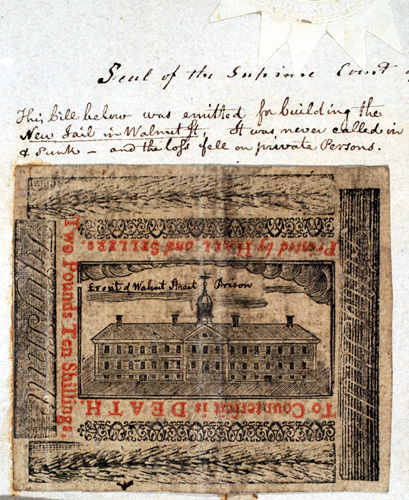 Seal of the Supreme Court
This bill below was emitted for building the
New Jail in Walnut St, It was never called in
& Sunk – and the loss fell on private Persons.
Printed by HALL and SELLERS.
Front of Walnut Street Prison
Two Pounds Ten Shillings.
To Counterfeit is DEATH.